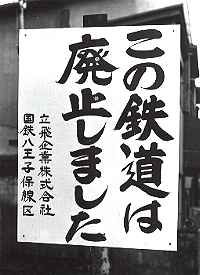 この鉄道は
廃止しました
立飛企業株式会社
国鉄八王子保線区